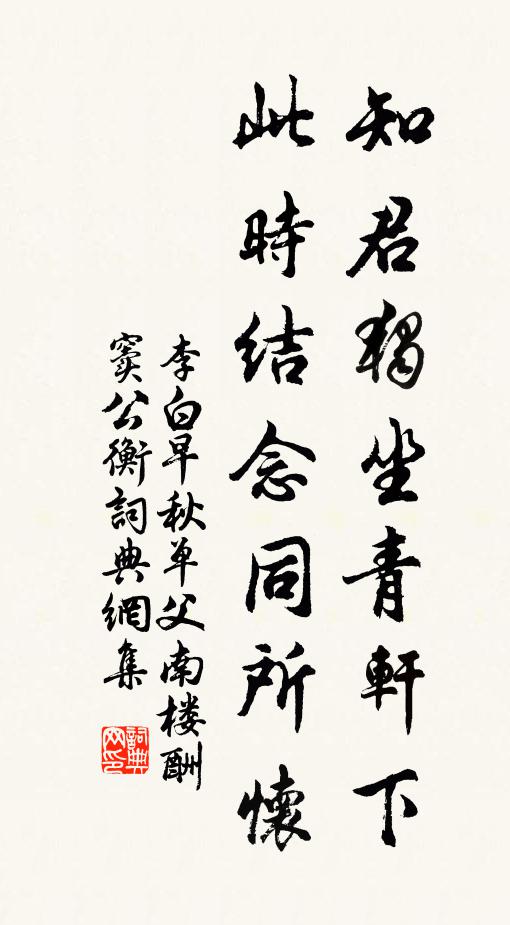 知君獨坐青軒下
此時结念同所懷
李白早秋单父南楼酬
窦公衡詞典網集
詞典网印